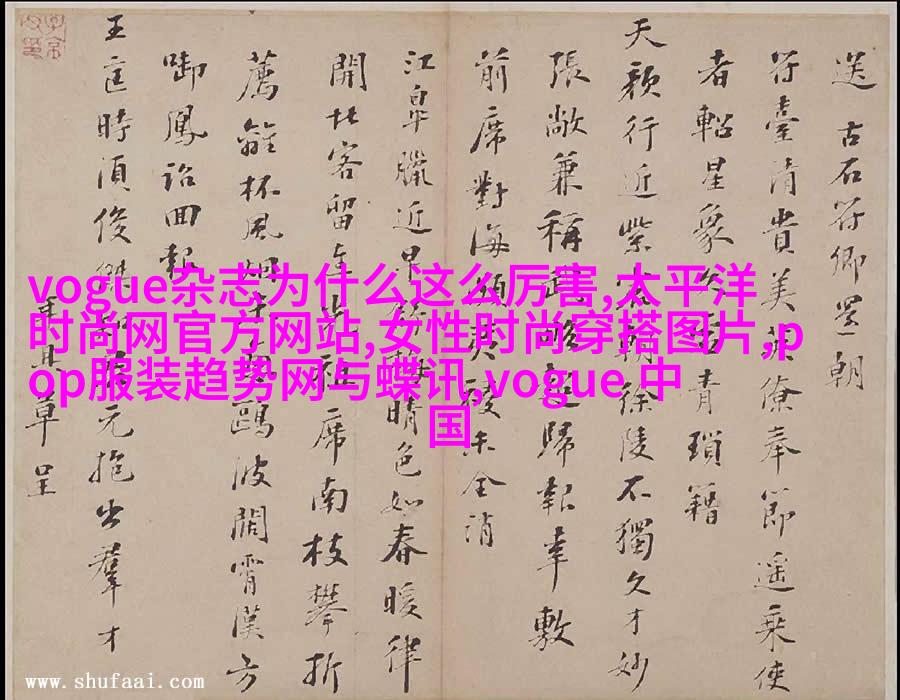 送 古石符卿還朝
符臺清貴美英僚奉節遙乘使
者軺星象久占青瑣籍
天顏行近紫宸朝徐陵不獨文才妙
張敞兼稱武略超歸報幸敷
前席對海頻未全消
江皐臘近早晴色如春暖律
開北客留連此祖席南枝攀折
薦離杯風烟鷗波闊霄漢方
啣鳳詔回報
王時須俊傑元抱出羣才
草呈
vogue杂志为什么这么厉害,太平洋
时尚网官方网站,女性时尚穿搭图片,p
op服装趋势网与蝶讯,vogue 中
国
www.shufaai.com